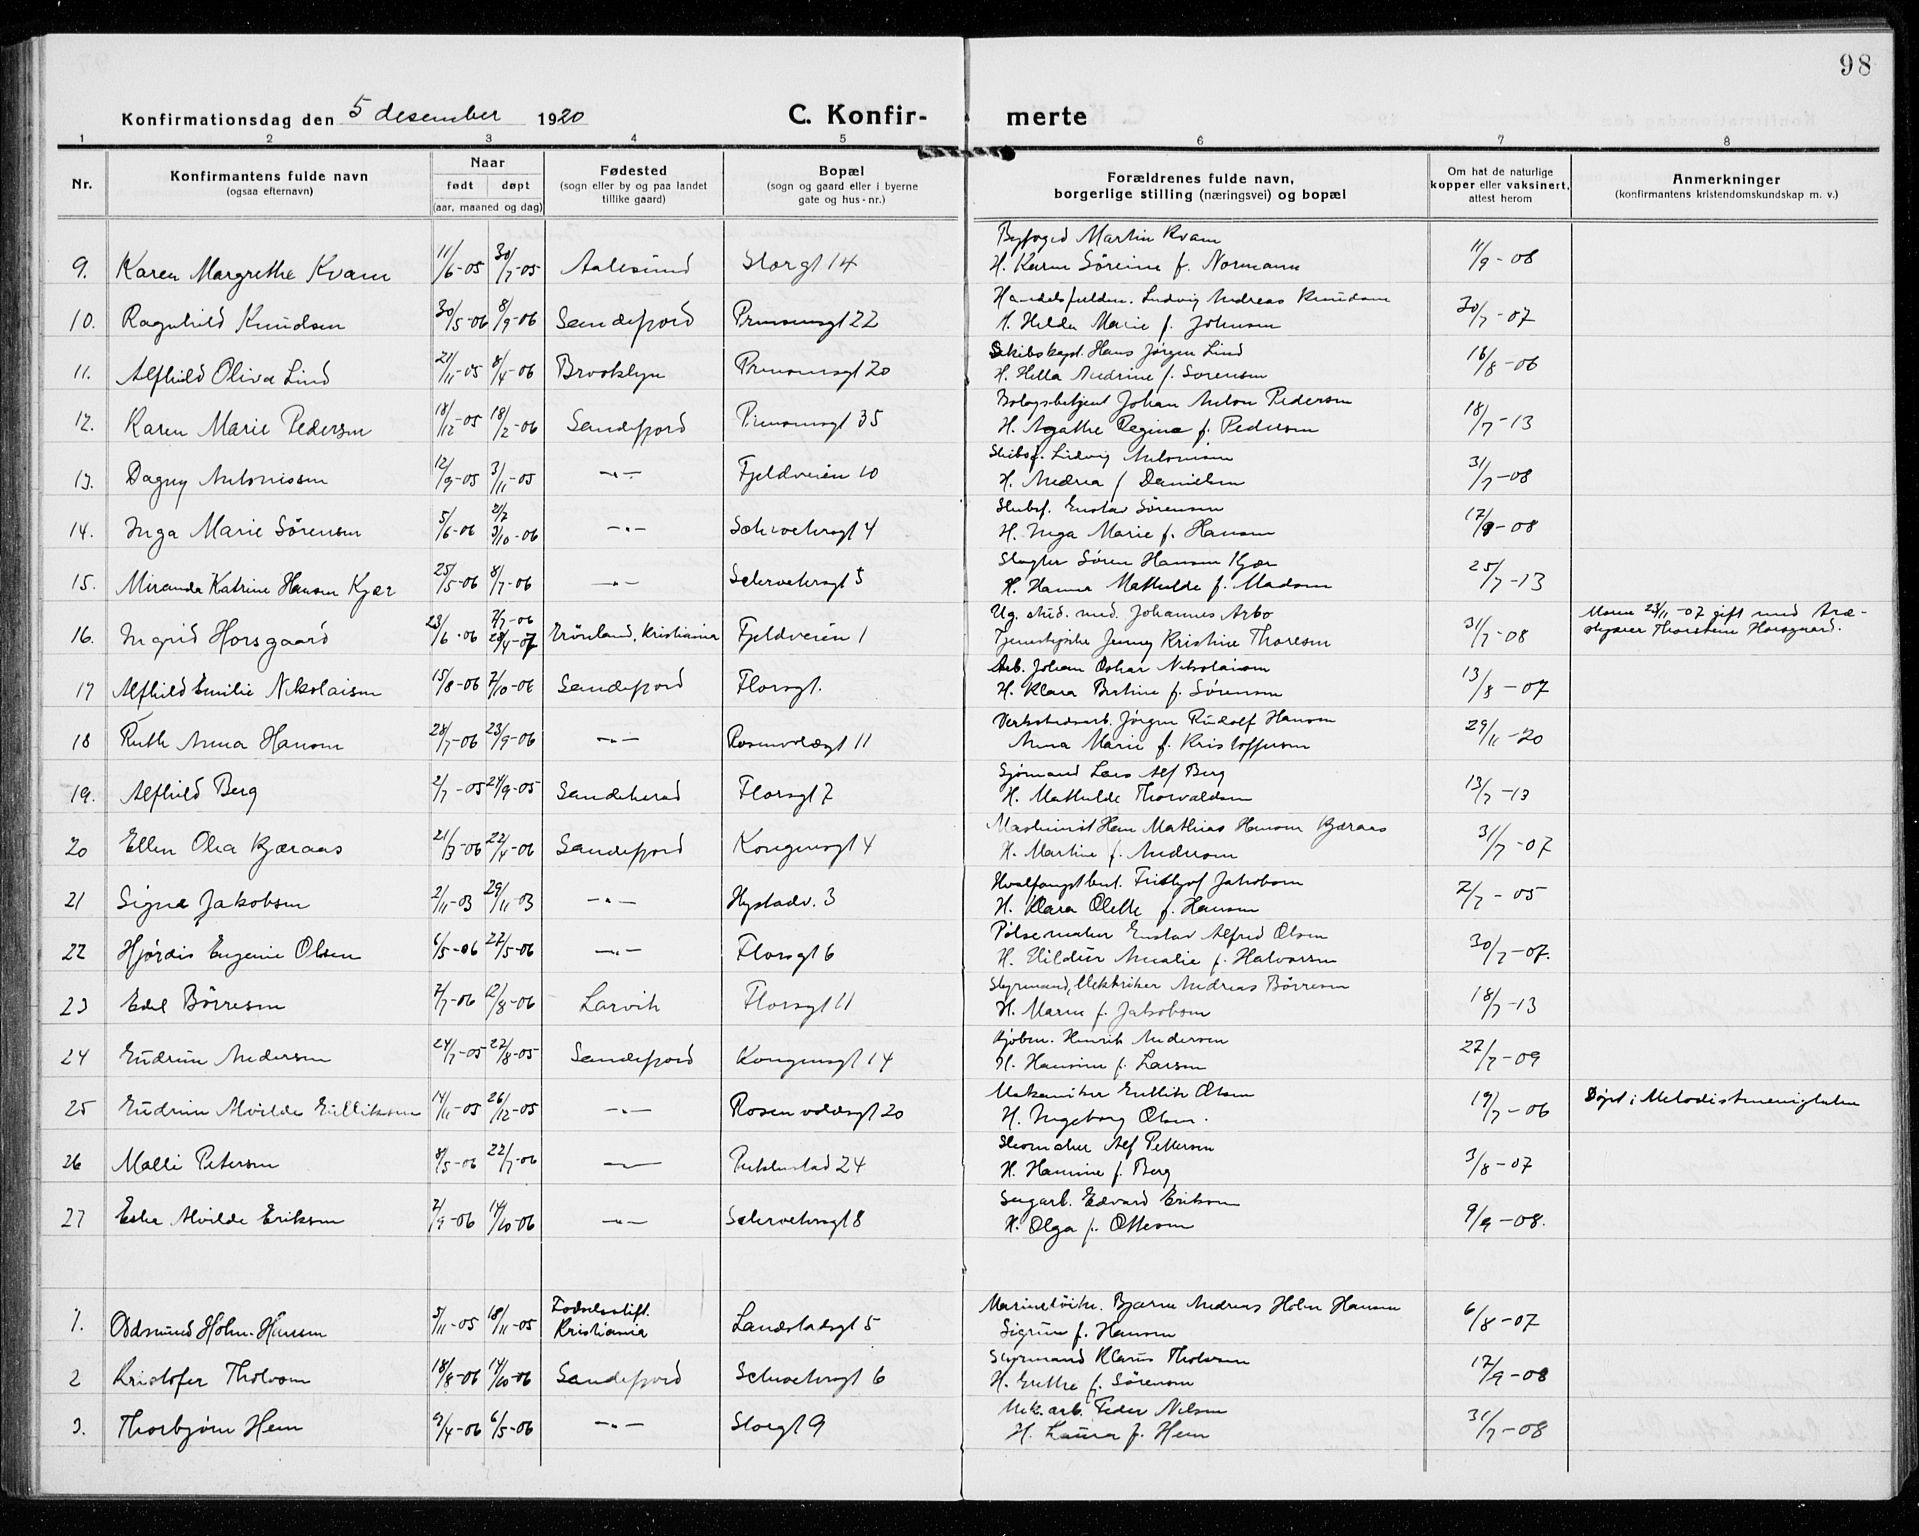 98
Konfirmationsdag den 5 desember 1920 C. Konfir- merte
1 2 3 4 5 6 7 8
Nr. Konfirmantens fulde navn (ogsaa efternavn) Naar født døpt (aar, maaned og dag) Fødested (sogn eller by og paa landet tillike gaard) Bopæl (sogn og gaard eller i byerne gate og hus-nr.) Forældrenes fulde navn, borgerlige stilling (næringsvei) og bopæl Om hat de naturlige kopper eller vaksinert, attest herom Anmerkninger (konfirmantens kristendomskundskap m. v.)
Byfoged Martin Kvam
9. Karen Margrethe Kvam 11/6-05 30/7-05 Aalesund Storgt 14 H. Karen Söreine f. Normann 11/9-08
Ludvig Andreas Knudsen
10. Ragnhild Knudsen 30/5-06 8/9-06 Sandefjord Prinsensgt 22 H. Helda Marie f. Johnsen 30/7-07
Skibskapt. Hans Jörgen Lind
11. Alfhild Oliva Lind 21/11-05 8/4-06 Brooklyn Prinsensgt 20 H. Hella Andrine f. Sorensen 16/8-06
Johan Anton Pedersen
12. Karen Marie Pedersen 18/12-05 18/2-06 Sandefjord Prinsensgt 35 H. Agathe Regine f. Pedersen 18/7-13
Skibsf. Ludvig Antonisen
13. Dagny Antonissen 12/9-05 3/11-05 -"- Fjeldveien 10 H. Andrea f Danielsen 31/7-08
Skibsf. Gustav Sörensen
14. Inga Marie Sörensen 5/6-06 2/7 3/10-06 -"- Schwebrsgt 4 H. Inga Marie f. Hansen 17/9-08
Slagter Sören Hansen Kjær
15. Miranda Katrine Hansen Kjær 25/5-06 8/7-06 -"- Schrvebrsgt 5 H. Hanna Mathilde f. Madsen 25/7-13
Ug. stud. med. Johannes Arbo
16. Ingrid Horsgaard 23/6-06 7/7-06 28/4-07 Grönland, Kristiania Fjeldveien 1 Tjenestepike Jenny Kristine Thoresen 31/7-08 Moren 23/11-07 gift med Thorstein Horsgaard.
Arb. Johan Oskar Nikolaisen
17 Alfhild Emilie Nikolaisen 15/8-06 7/10-06 Sandefjord Florsgt. H. Klara Bertine f. Sörensen 13/8-07
Verkstedsarb. Jörgen Rudolf Hansen
18 Ruth Anna Hansen 28/7-06 23/9-06 -"- Rosenvoldsgt 11 Anna Marie f. Kristoffersen 29/11-20
Sjömand Lars Alf Berg
19. Alfhild Berg 2/7-05 24/9-05 Sandeherad Florsgt 7 H. Mathilde Thorvaldsen 13/7-13
Maskinist Hem Mathias Hansen Kjæraas
20 Ellen Olea Kjæraas 21/3-06 22/4-06 Sandefjord Kongensgt 4 H. Martine f. Andersen 31/7-07
Hvalfangstbest. Fridtjof Jakobsen
21 Signe Jakobsen 2/11-03 29/11-03 -"- Hystadv. 3 H. Klara Olette f. Hansen 7/7-05
Pölsemaker Gustav Alfred Olsen
22 Hjördis Eugenie Olsen 6/5-06 27/5-06 -"- Florsgt 6 H. Hildur Amalie f. Halvorsen 30/7-07.
Styrmand, Elektriker Andreas Börresen
23 Edel Börresen 7/7-06 12/8-06 Larvik Florsgt 11 H. Maren f. Jakobsen 18/7-13
Kjöbm. Henrik Andersen
24 Gudrun Andersen 24/7-05 27/8-05 Sandefjord Kongensgt 14 H. Hansine f. Larsen 27/7-09
Mekaniker Gullik Olsen
25 Gudrun Alvilde Gulliksen 14/11-05 26/12-05 -"- Rosenvoldsgt 20 H. Ingeborg Olsen. 19/7-06 Döpt i Metodistmenigheten
Skomaker Alf Pettersen
26 Malli Petersen 8/5-06 22/7-06 -"- Pukkestad 24 H. Hansine f. Berg 3/8-07
Edvard Eriksen
27 Alvilde Eriksen 7/9-06 14/10-06 -"- Schrvebrsgt 8 H. Olga f. Ottesen 9/9-08.
Bjarne Andreas Holm Hansen
1. Oddmund Holm-Hansen 3/11-05 18/11-05 Födselsstift. Kristiania Landstadsgt 5 Sigrun f. Hansen 6/8-07
Styrmand Klaus Tholvsen
2 Kristofer Tholvsen 18/8-06 14/10-06 Sandefjord Schwebrsgt 6 H. Grethe f. Sörensen 17/9-08
Mek. arb. Peder Nilsen
3. Thorbjörn Hem 9/4-06 6/5-06 -"- Storgt 9 H. Laura f. Hem 31/7-08